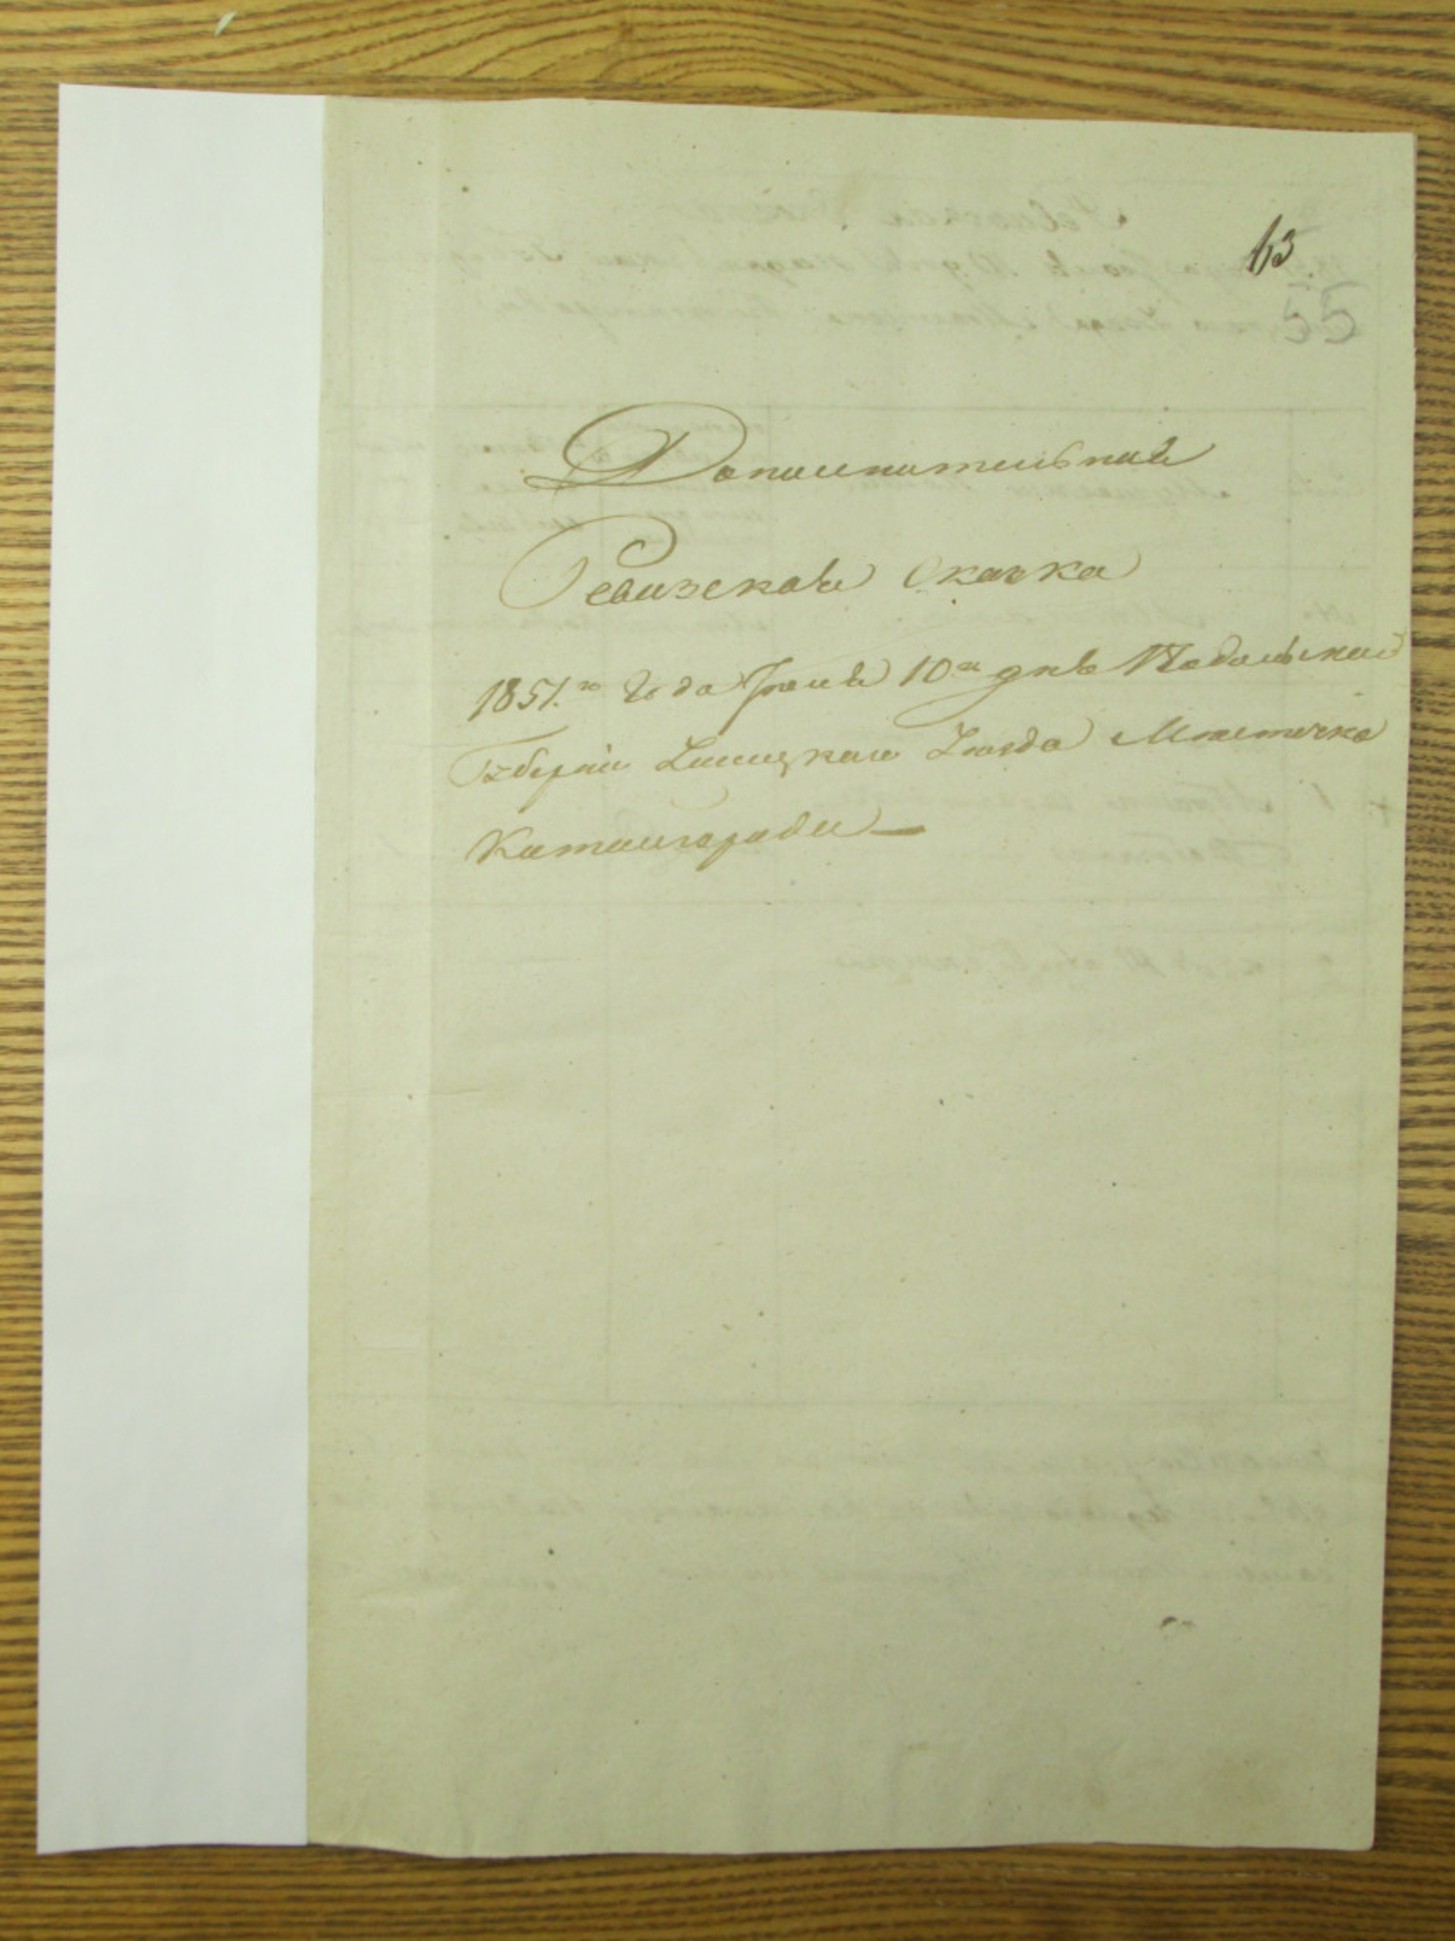 63
55
Дополнительная
Ревизская Сказка
1851.го Года Іюня 10го дня Подольской
Губерніи Ушицкаго Уезда Местечка
Китайгорода